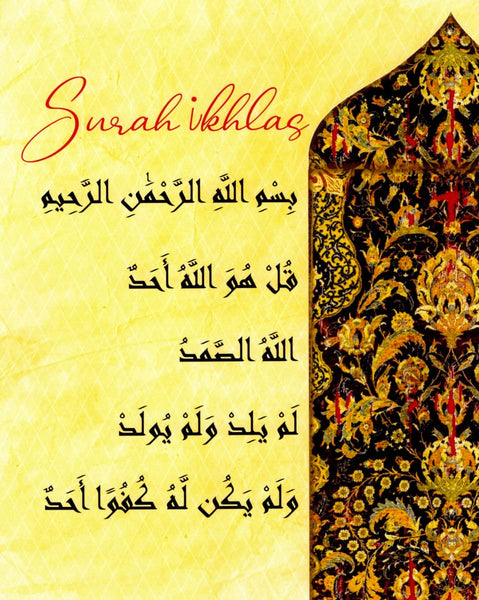 Surah ikhlas
بِسْمِ اللَّهِ الرَّحْمَٰنِ الرَّحِيمِ
قُلْ هُوَ اللَّهُ أَحَدٌ
اللَّهُ الصَّمَدُ
لَمْ يَلِدْ وَلَمْ يُولَدْ
وَلَمْ يَكُن لَّهُ كُفُوًا أَحَدٌ